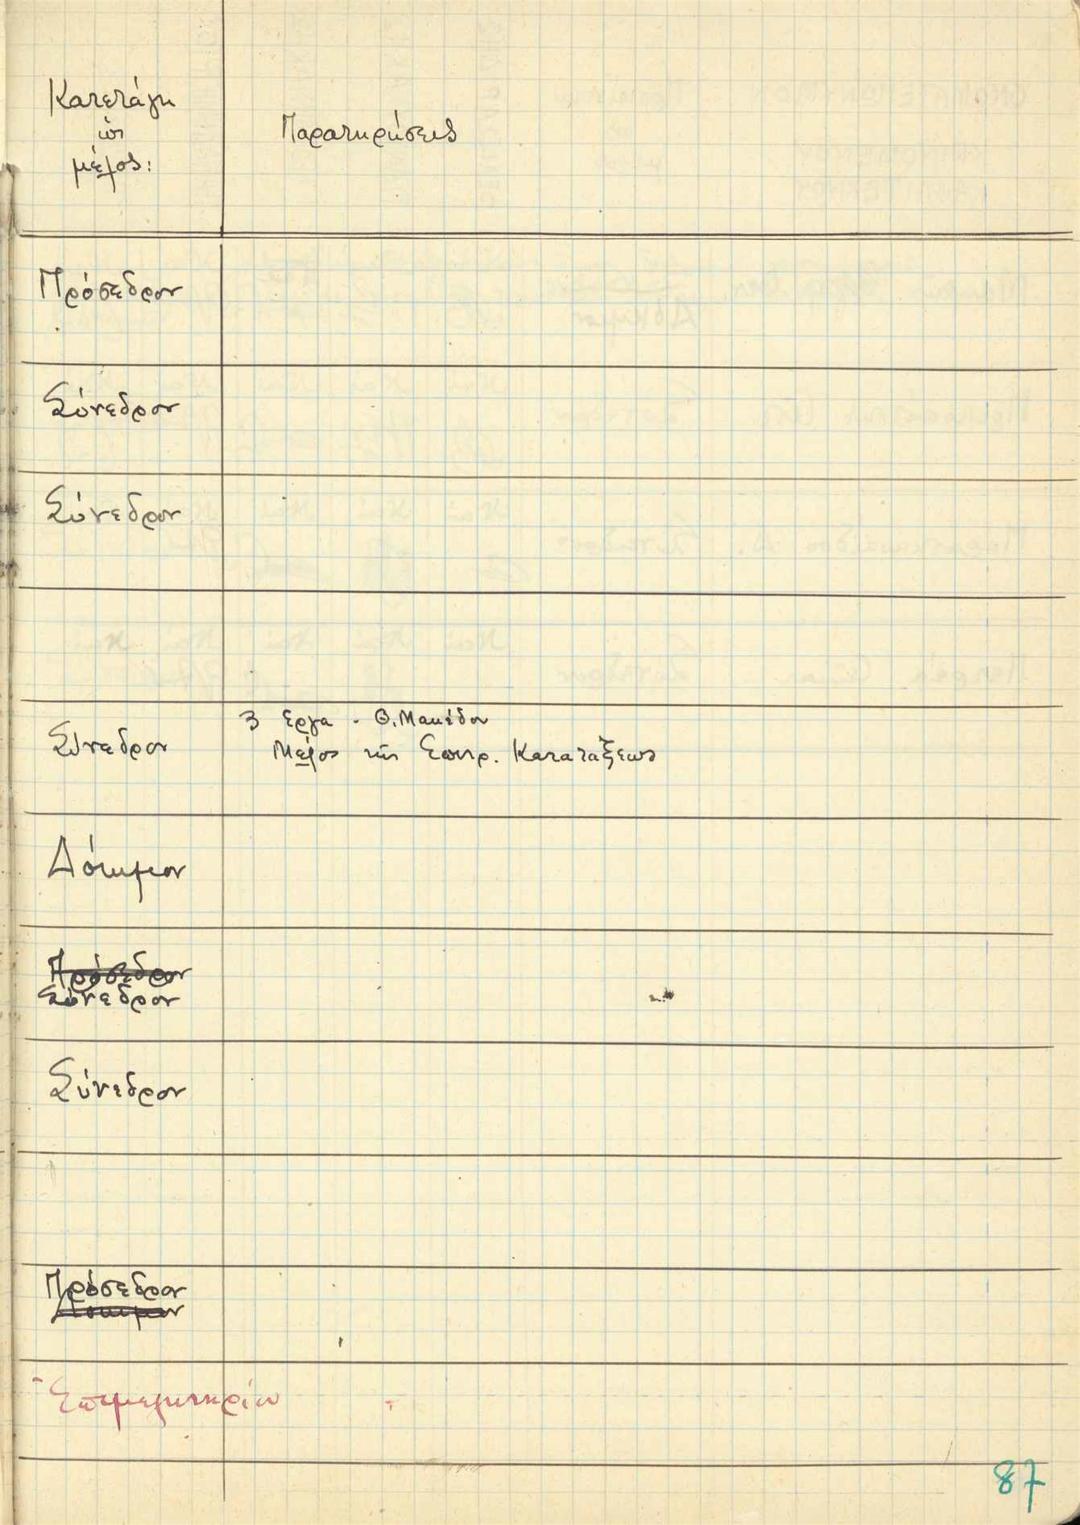 Κατετάγη
ὡς
μέλος:
Παρατηρήσεις
Πρόσεδρον
Σύνεδρον
Σύνεδρον
Σύνεδρον
3 έργα - Θ. Μακέδον
Μέλος τῆς Επιτρ. Κατατάξεως
Δόκιμον
Πρόσεδρον
Σύνεδρον
Σύνεδρον
Πρόσεδρον
Δόκιμον
Ἐπιμελητηρίου
87